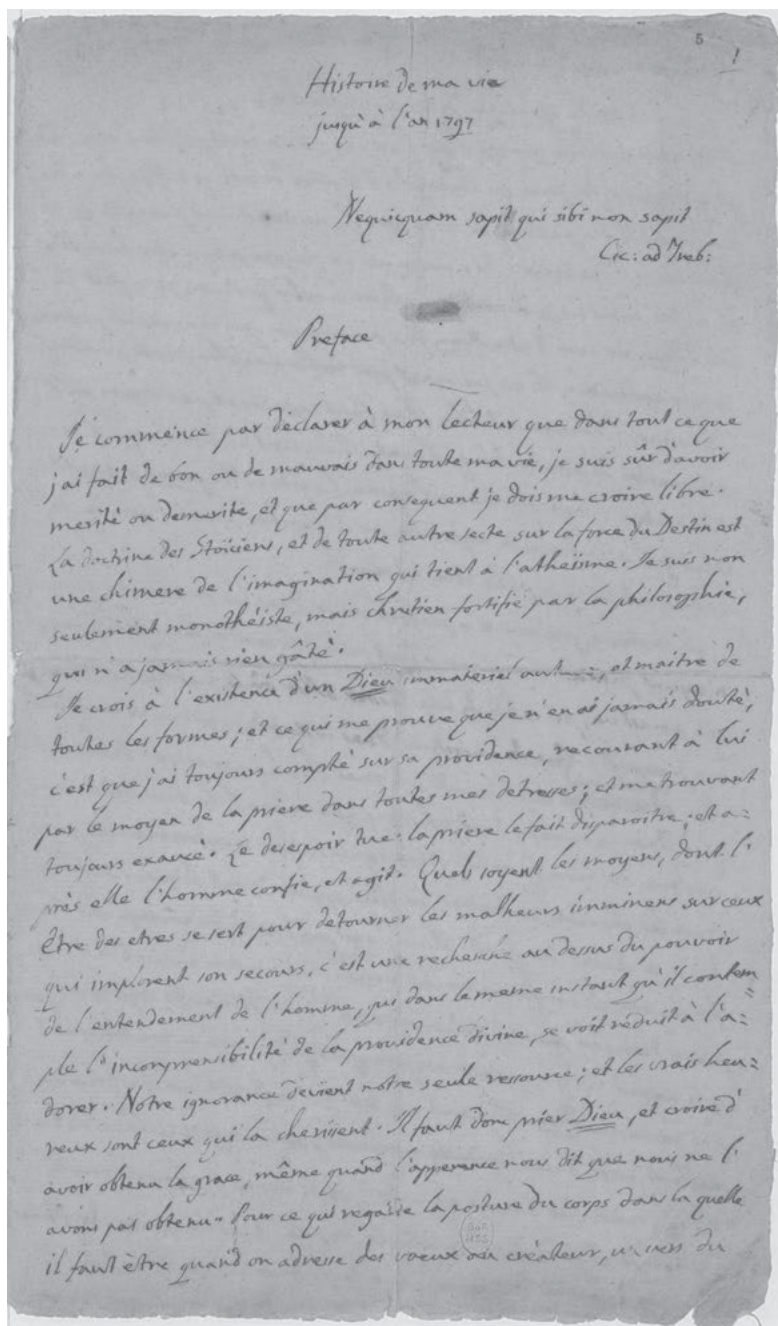 5
1
Histoire de ma vie
jusqu'à l'an 1797
Nequicquam sapit qui sibi non sapit
Cic: ad Treb:
Preface
Je commence par déclarer à mon lecteur que dans tout ce que
j'ai fait de bon ou de mauvais dans toute ma vie, je suis sûr d'avoir
merité ou demerité, et que par consequent je dois me croire libre.
La doctrine des Stoïciens, et de toute autre secte sur la force du Destin est
une chimere de l'imagination qui tient à l'atheïsme. Je suis non
seulement monothéiste, mais chretien fortifié par la philosophie,
qui n'a jamais rien gâté.
Je crois à l'existence d'un Dieu immateriel auteur, et maitre de
toutes les formes; et ce qui me prouve que je n'en ai jamais douté,
c'est que j'ai toujours compté sur sa providence, recourant à lui
par le moyen de la priere dans toutes mes detresses; et me trouvant
toujours exaucé. Le desespoir tue: la priere le fait disparoitre; et a=
près elle l'homme confie, et agit. Quels soyent les moyens, dont l'
Être des etres se sert pour detourner les malheurs imminens sur ceux
qui implorent son secours, c'est une recherche au dessus du pouvoir
de l'entendement de l'homme, qui dans le meme instant qu'il contem=
ple l'incomprensibilité de la providence divine, se voit réduit à l'a=
dorer. Notre ignorance devient notre seule ressource; et les vrais heu=
reux sont ceux qui la cherissent. Il faut donc prier Dieu, et croire d'
avoir obtenu la grace, même quand l'apparence nous dit que nous ne l'
avons pas obtenu. Pour ce qui regarde la posture du corps dans la quelle
il faut être quand on adresse des voeux au créateur, un vers du